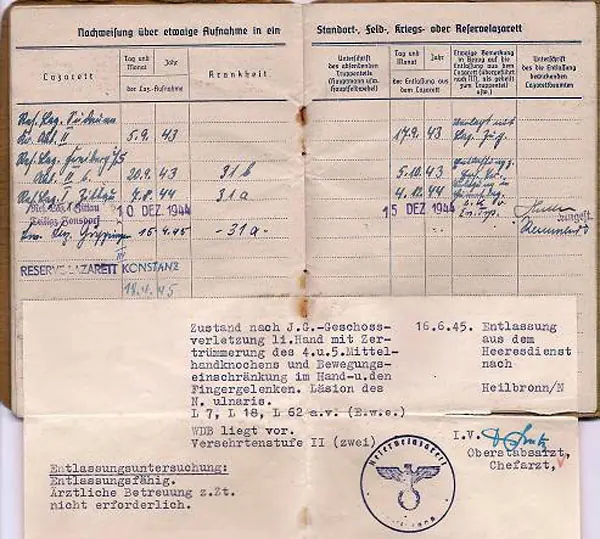 Nachweisung über etwaige Aufnahme in ein Standort-, Feld-, Kriegs- oder Reservelazarett
Lazarett
Tag und Monat
Jahr
der Laz.-Aufnahme
Krankheit
Unterschrift des absendenden Truppenteils (Hauptmann usw. Hauptfeldwebel)
Tag und Monat
Jahr
der Entlassung aus dem Lazarett
Etwaige Bemerkung in Bezug auf die Entlassung aus dem Lazarett (übergeführt nach NN, als geheilt zum Truppenteil usw.)
Unterschrift des die Entlassung bewirkenden Lazarettbeamten
Res. Laz.
Abt. II 5.9. 43 17.9. 43 Laz. Zug.
Res. Laz. Freiberg/S
Abt. II 20.9. 43 31b 5.10. 43
Res. Laz. I Zittau 7.8. 44 31a 4.12. 44
10 DEZ. 1944 15 DEZ. 1944
Laz. Göppingen 15.4.45 -31a-
III
RESERVE-LAZARETT KONSTANZ
18.4.45
Zustand nach J.G.-Geschoss-
verletzung li.Hand mit Zer-
trümmerung des 4.u.5.Mittel-
handknochens und Bewegungs-
einschränkung im Hand-u.den
Fingergelenken. Läsion des
N. ulnaris.
L 7, L 18, L 62 a.v. (B.w.e.)
WDB liegt vor.
Versehrtenstufe II (zwei)
16.6.45. Entlassung
aus dem
Heeresdienst
nach
Heilbronn/N
I.V.
Oberstabsarzt,
Chefarzt,
Entlassungsuntersuchung:
Entlassungsfähig.
Ärztliche Betreuung z.Zt.
nicht erforderlich.
Reservelazarett